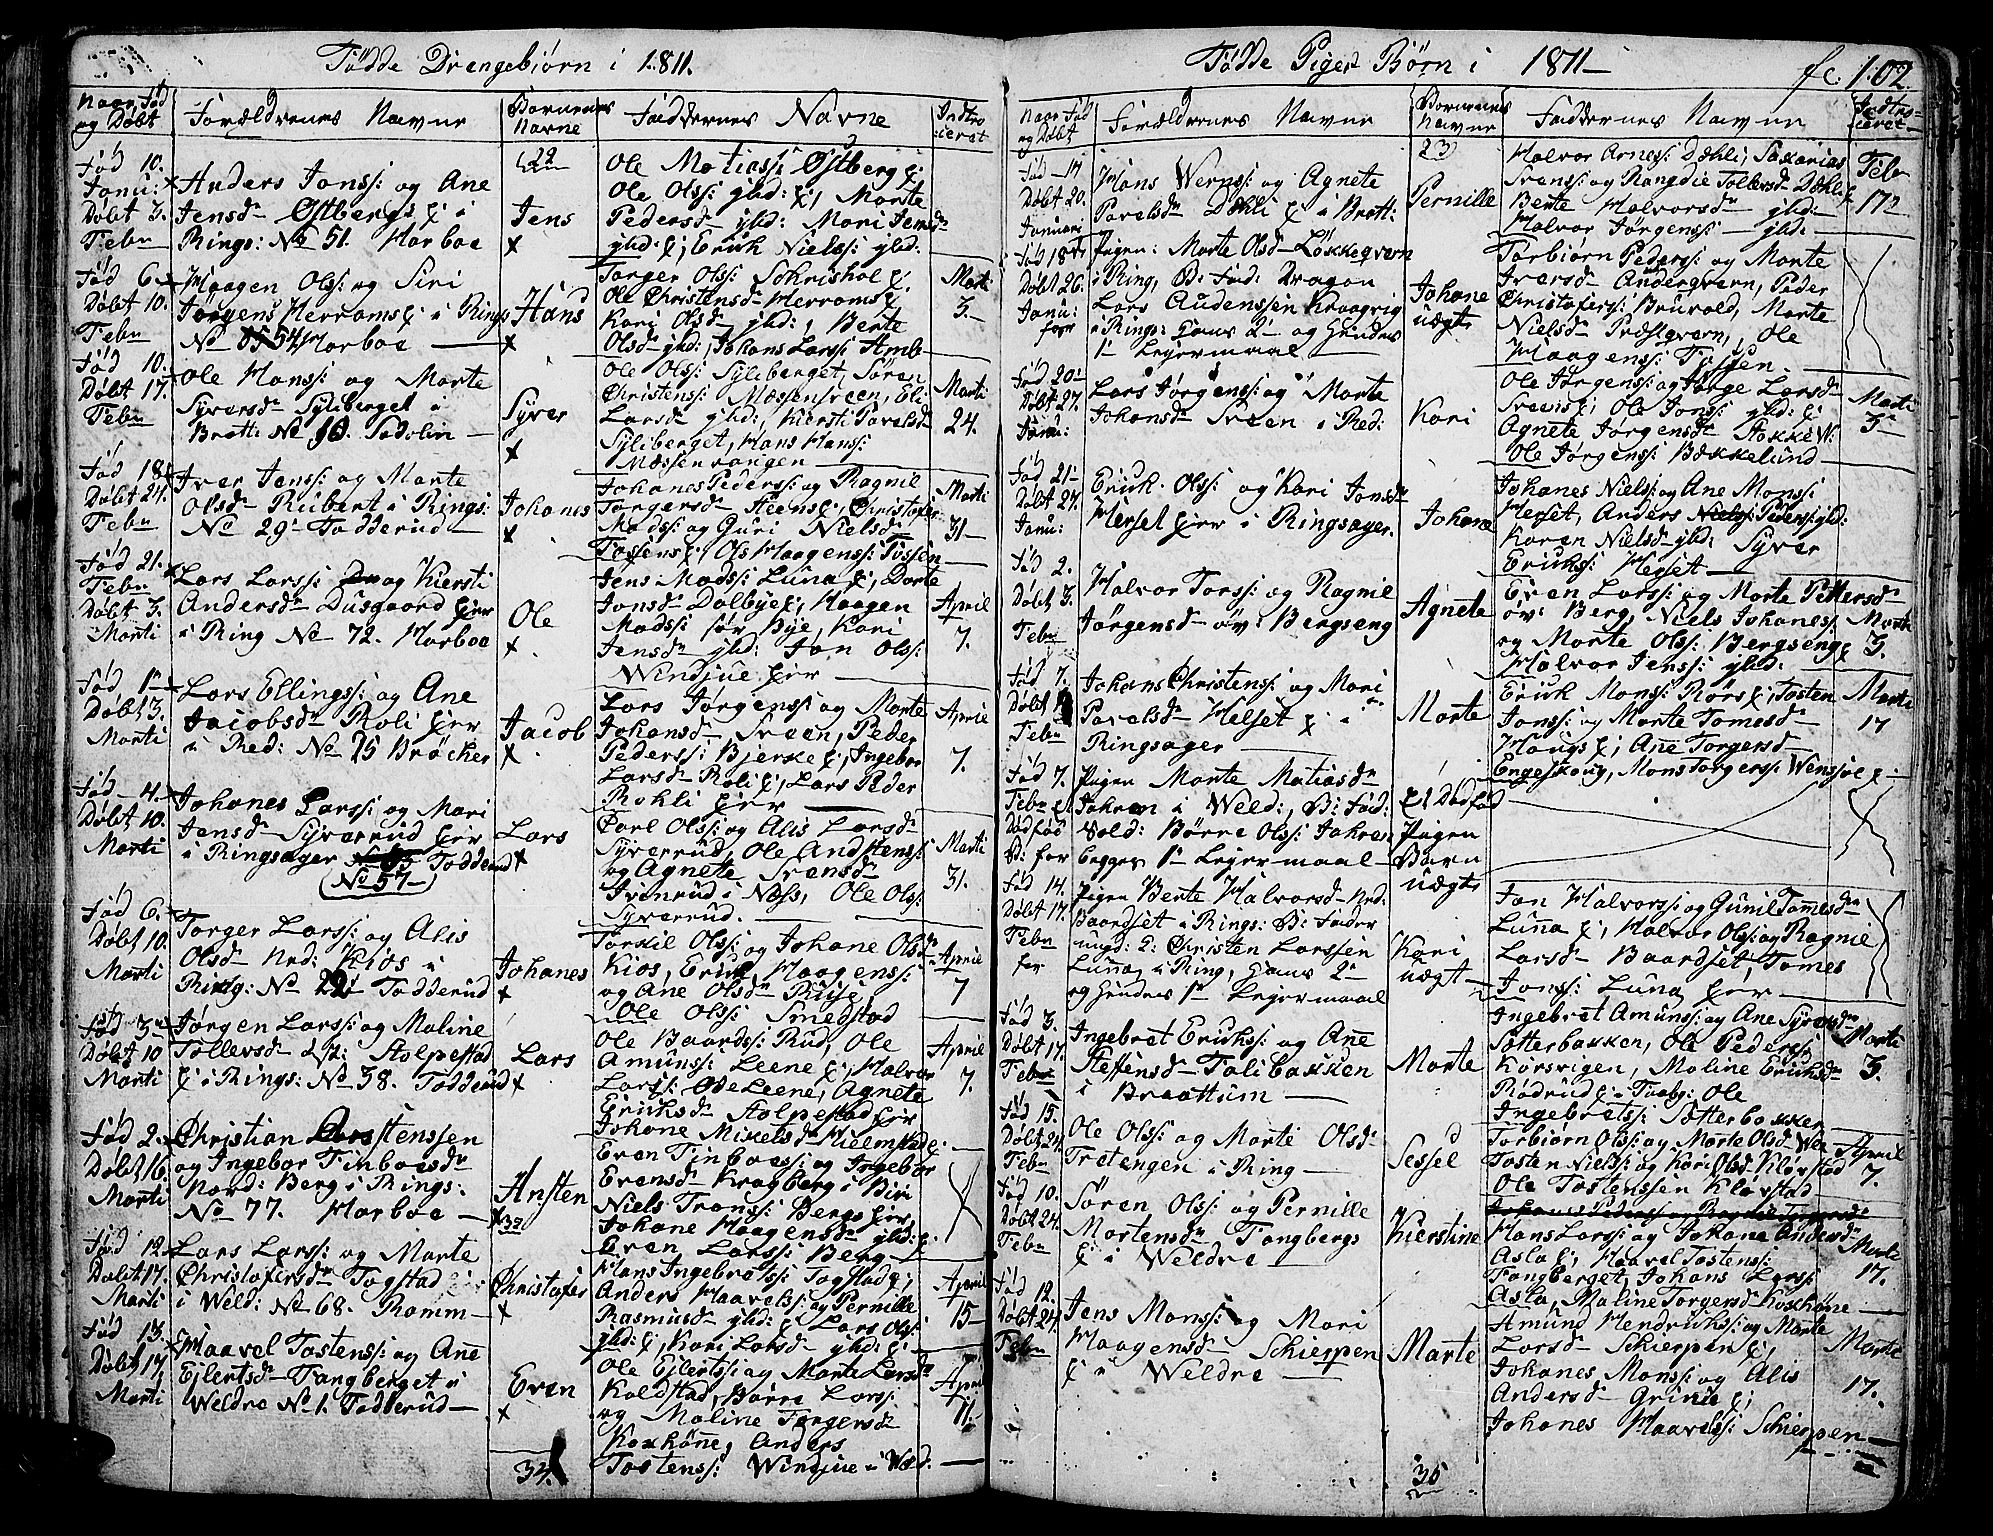 Födde Drengebiörn i 1811.
Naar Fód og Döbt
Forældrenes Navne
Bornenes Navne
Faddernes Navne
Indtro-ieret
22
Fód 10. Janu: Döbt 3. Febu
Anders Jonss: og Ane
Jensdr Østbergs E: i
Rings: No 51. Harboe
Jens
Ole Matiass: Østberg E:
Ole Olss: ybd: E; Marte
Pedersdr ybd: Mari Jensdr
ybd: E; Erick Nielss: ybd:
Fód 6. Döbt 10. Febu
Haagen Olss: og Siri
Jörgens Herrams E: i Rings
No 54 Harboe
Hans
Torger Olss: Schrishol E:
Ole Christensdr Herrams E
Kari Olsdr ybd:, Berte
Olsdr ybd:, Johans Larss: Amb
Marti
3.
Fód 10. Döbt 17. Febu
Ole Hanss: og Marte
Syversdr Syliberget i
Brött: No 10. Sadolin
Syver
Ole Olss: Syliberget, Sören
Christens: Mæssensveen, Eli
Larsd ybd:, Kiersti Pavelsdr
Syliberget, Hans Hans:
Mæssenvangen
Marti
24.
Fód 18. Döbt 24. Febu
Iver Jenss: og Marte
Olsdr Rubert i Rings:
No 29. Todderud
Johanes
Johanes Peders: og Ragnil
Torgersdr Steens E: Christofer
Madss: og Guri Nielsdr
Tossens E: Ols Haagenss: Tossen
Marti
31
Fód 21. Febu Döbt 3. Marti
Lars Larss: og Kiersti
Andersdr Dusgaard Eier
i Ring No 72. Harboe
Ole
Jens Madss: Luna E;, Dorte
Jonsdr Dalbye E;, Haagen
Madss: sör Bye, Kari
Jensdr ybd: Jon Olss:
Windjue Eier
April
7.
Fód 1. Döbt 3. Marti
Lars Ellingss: og Ane
Jacobsdr Roli Eier
i Red: No 25 Bröcker
Jacob
Lars Jörgenss: og Marte
Johansdr Sveen, Peder
Pederss: Bjerke E;, Ingebor
Larsdr Roli E;, Lars Peder
Rohli Eier
April
7.
Fód 4. Döbt 10. Marti
Johanes Larss: og Mari
Jensdr Syverrud Eier
i Ringsager Todderud
No 57
Lars
Carl Olss: og Alis Larsdr
Syverrud, Ole Andstenss:
og Agnete Svensdr
Ivenrud i Næss, Ole Olss:
Syverrud.
Marti
31.
Fód 6. Döbt 10. Marti
Torger Larss: og Alis
Olsdr Nrd: Kios i
Ring: No 22 Todderud
Johanes
Torskil Olss: og Johane Olsdr
Kios, Erick Haagenss:
og Ane Olsdr Ruse
Ole Olss: Smedstad
April
7
Fód 3. Döbt 10 Marti
Jörgen Larss: og Maline
Tollersdr Stolpestad
E: i Rings: No 38. Todderud
Lars
Ole Baardss: Rud, Ole
Amunss: Leene E;, Halvor
Larss: Leene, Agnete
Ericksdr Stolpestad Eier
Johane Mikelsdr Hielmstad E:
April
7.
Fód 2. Döbt 16. Marti
Christian Anstenssen
og Ingebor Finboesdr
Nord: Berg i Rings:
No 77. Harboe
Ansten
Even Finboess: og Ingebor
Evensdr Kragberg i Biri
Niels Tronss: Bergs Eier
Johane Haagensdr ybd: E.
Even Larss: Berg
Fód 12. Döbt 17. Marti
Lars Larss: og Marte
Christofersdr Togstad
i Weld: No 68. Ramm
Christofer
Hans Ingebretss: Togstad E;,
Anders Haavelss: og Pernille
Rasmusdr ybd: E Lars Olss:
ybd: E; Kari Larsdr ybd: E:
April
15
Fód 13. Döbt 17. Marti
Haavel Tostenss: og Ane
Ejlertsdr Fangberget i
Weldre No 1. Todderud
Even
Ole Ejlertss: og Marte Larsdr
Koldstad, Börre Larss:
og Maline Torgersdr
Koxhöne, Anders
Tostenss: Windjue i Wæd:
April
11.
34
Födde Piger Börn i 1811
fc. 102.
Naar Fód og Döbt
Forældrenes Navne
Bornenes Navne
Faddernes Navne
Indtro-ieret
23
Fód 17 Döbt 20. Januari
Hans Werpss: og Agnete
Pavelsdr Dæhli E i Brött:
Pernille
Halvor Arness: Dæhli, Saxarias
Svenss: og Rangdie Tollersdr Dæhli E
Berte Halvorsdr ybd:
Halvor Jörgenss: ybd:
Feb
172
Fód 18 Döbt 26. Janu: for
Pigen: Marte Olsdr Løkkegvern
i Ring, B: Fad: Dragon
Lars Audenssen Kraagvig
i Rings: Hans 2 og Hendes
1 Lejermaal
Johane uægt
Torbiörn Pederss: og Marte
Iversdr Andergvern, Peder
Christofers: Bruvald, Marte
Nielsdr Præstgvern, Ole
Haagenss: Tossen.
Fód 20 Döbt 27. Janu:
Lars Jörgenss: og Marte
Johansdr Sveen i Red:
Kari
Ole Jörgenss: og Inge Larsdr
Sveens E;, Ole Jonss: ybd: E;
Agnete Jörgensdr Stokke W:
Ole Jörgenss: Bækkelund
Marti
3
Fód 21 Döbt 27. Janu:
Erick Olss: og Kari Jonsdr
Herset Eier i Ringsager.
Johane
Johanes Nielss: og Ane Monss:
Herset, Anders Pederss: ybd:
Karen Nielsdr ybd: Syver
Erickss: Herset
Fód 2. Döbt 3. Febu
Halvor Torss: og Ragnil
Jörgensdr öv: Bergseng
Agnete
Even Larss: og Marte Pettersdr
öv: Berg, Niels Johaness:
og Marte Olss: Bergseng E
Halvor Jenss: ybd.
Marti
3.
Fód 7. Döbt Febu
Johans Christenss: og Mari
Pavelsdr Helset E: i
Ringsager
Marte
Erick Monss: Rörs E;, Tosten
Jonss: og Marte Tomesdr
Haugs E;, Ane Torgersdr
Engeskoug, Mons Torgerss: Wensjoe E:
Marti
17
Fód 7. Febu Dødfód B: for
Pigen Marte Matiasdr
Jahren i Weld:, B: Fad:
Sold: Börre Olss: Jahren
begges 1 Lejermaal
Et Dødfød Pigen Barn uægt
Fód 14. Döbt 17. Febu for
Pigen Berte Halvorsdr Nrd:
Baardset i Rings: B: Fader
Christen Larssen
Luna i Ring, Hans 2
og Hendes 1 Lejermaal
Kari uægt
Jon Halvorss: og Gunil Tomesdr
Luna E;, Halvor Olss: og Ragnil
Larsdr Baardset, Tomes
Jonss: Luna Eier
Fód 3. Döbt 17. Febu
Ingebret Erickss: og Ane
Steffensdr Talibakken
i Brøttum
Marte
Ingebret Amunss: og Ane Syversdr
Sætterbakken, Ole Pederss
Korsvigen, Maline Ericksdr
Rödrud E: Faab: Ole
Ingebretss: Sætterbakken
Marti
3.
Fód 15. Döbt 24. Febu
Ole Olss: og Marte Olsdr
Tretengen i Ring
Sessel
Torbiörn Olss: og Marte Olsd
Tosten Nielss: og Kari Olsd Klövstad
Ole Tostenssen Klövstad
April
7.
Fód 10. Döbt 24. Febu
Sören Olss: og Pernille
Mortensdr Fangbergs
E: i Weldre
Kierstine
Hans Larss: og Johane Andersdr
Asla E;, Haavel Tostens:
Fangberget, Johans Larss:
Asla, Maline Torgersdr Koxhöne
Marti
17.
Fód 12. Döbt 24. Febu
Jens Monss: og Mari
Haagensdr Schierpen
E: i Weldre
Marte
Amund Hendrickss: og Marte
Larsdr Schierpen E;,
Johanes Monss: og Alis
Andersdr Grinie E;
Johanes Haavelss: Schierpen
Marti
17.
36